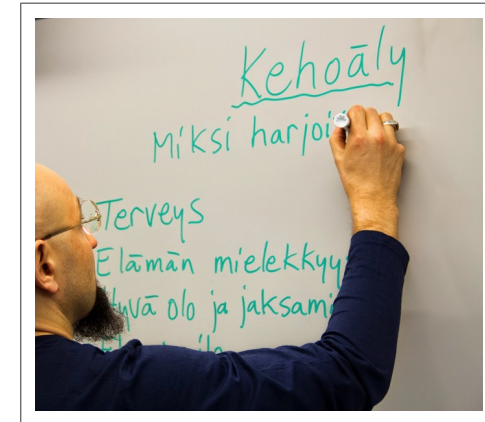 Kehoäly
Miksi harjoi
Terveys
Elämän mielekkyy
Hyvä olo ja jaksami